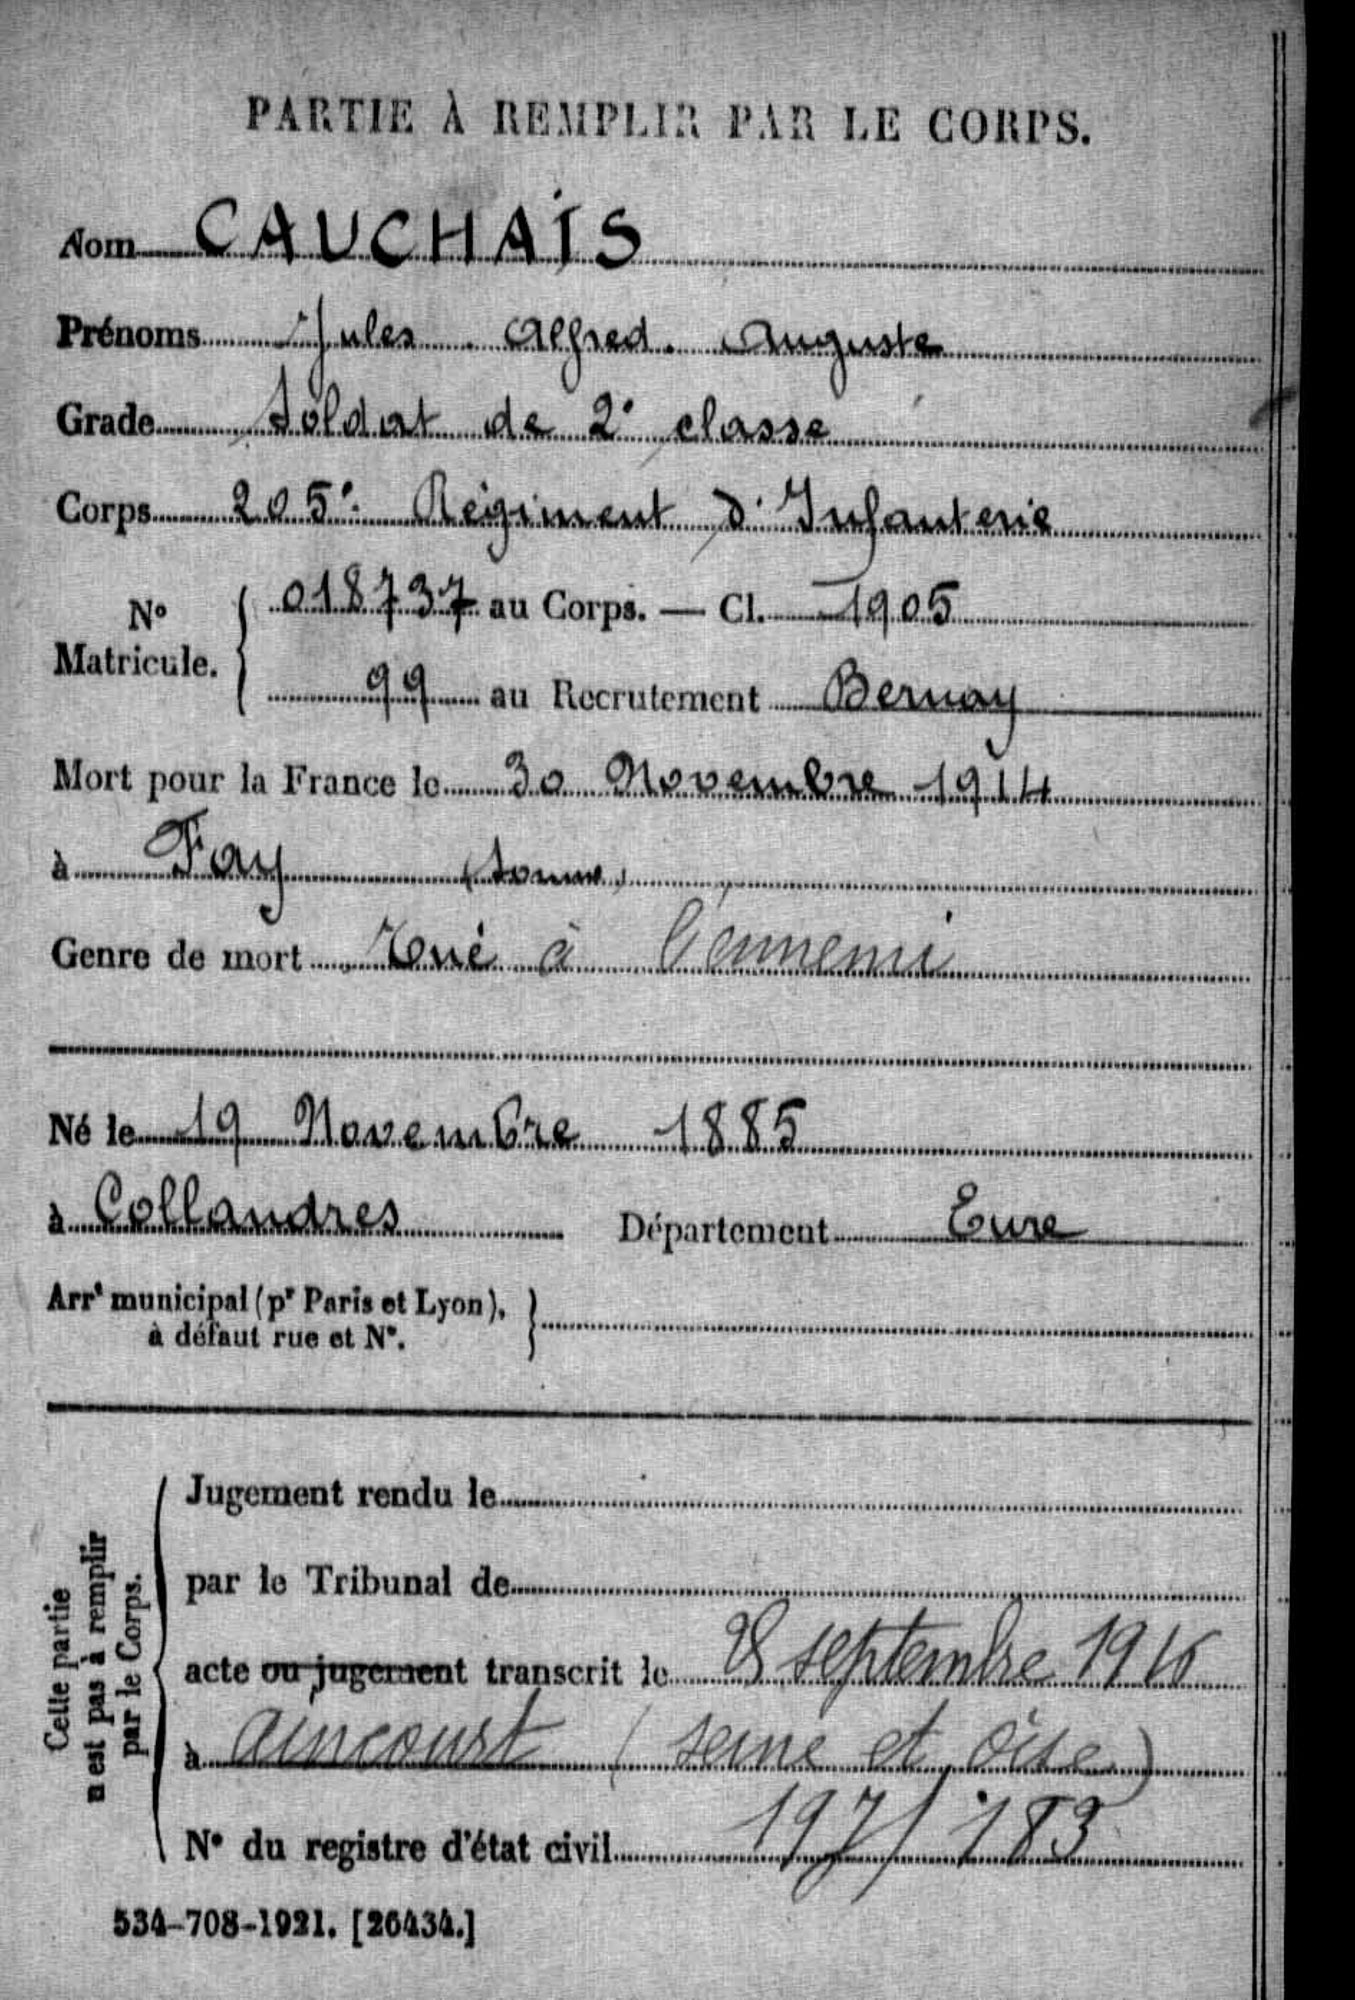 PARTIE À REMPLIR PAR LE CORPS.
Nom CAUCHAIS
Prénoms Jules Alfred Auguste
Grade Soldat de 2e classe
Corps 205e Régiment d'Infanterie
N° Matricule. { 018737 au Corps. — Cl. 1905
99 au Recrutement Bernay
Mort pour la France le 30 Novembre 1914
à Fay (Somme)
Genre de mort Tué à l'ennemi
Né le 19 Novembre 1885
à Collandres Département Eure
Arrt municipal (pr Paris et Lyon), }
à défaut rue et N°.
Cette partie
n'est pas à remplir
par le Corps.
Jugement rendu le
par le Tribunal de
acte ou jugement transcrit le 28 septembre 1916
à aincourt (seine et oise)
N° du registre d'état civil 197/183
534-708-1921. [26434.]